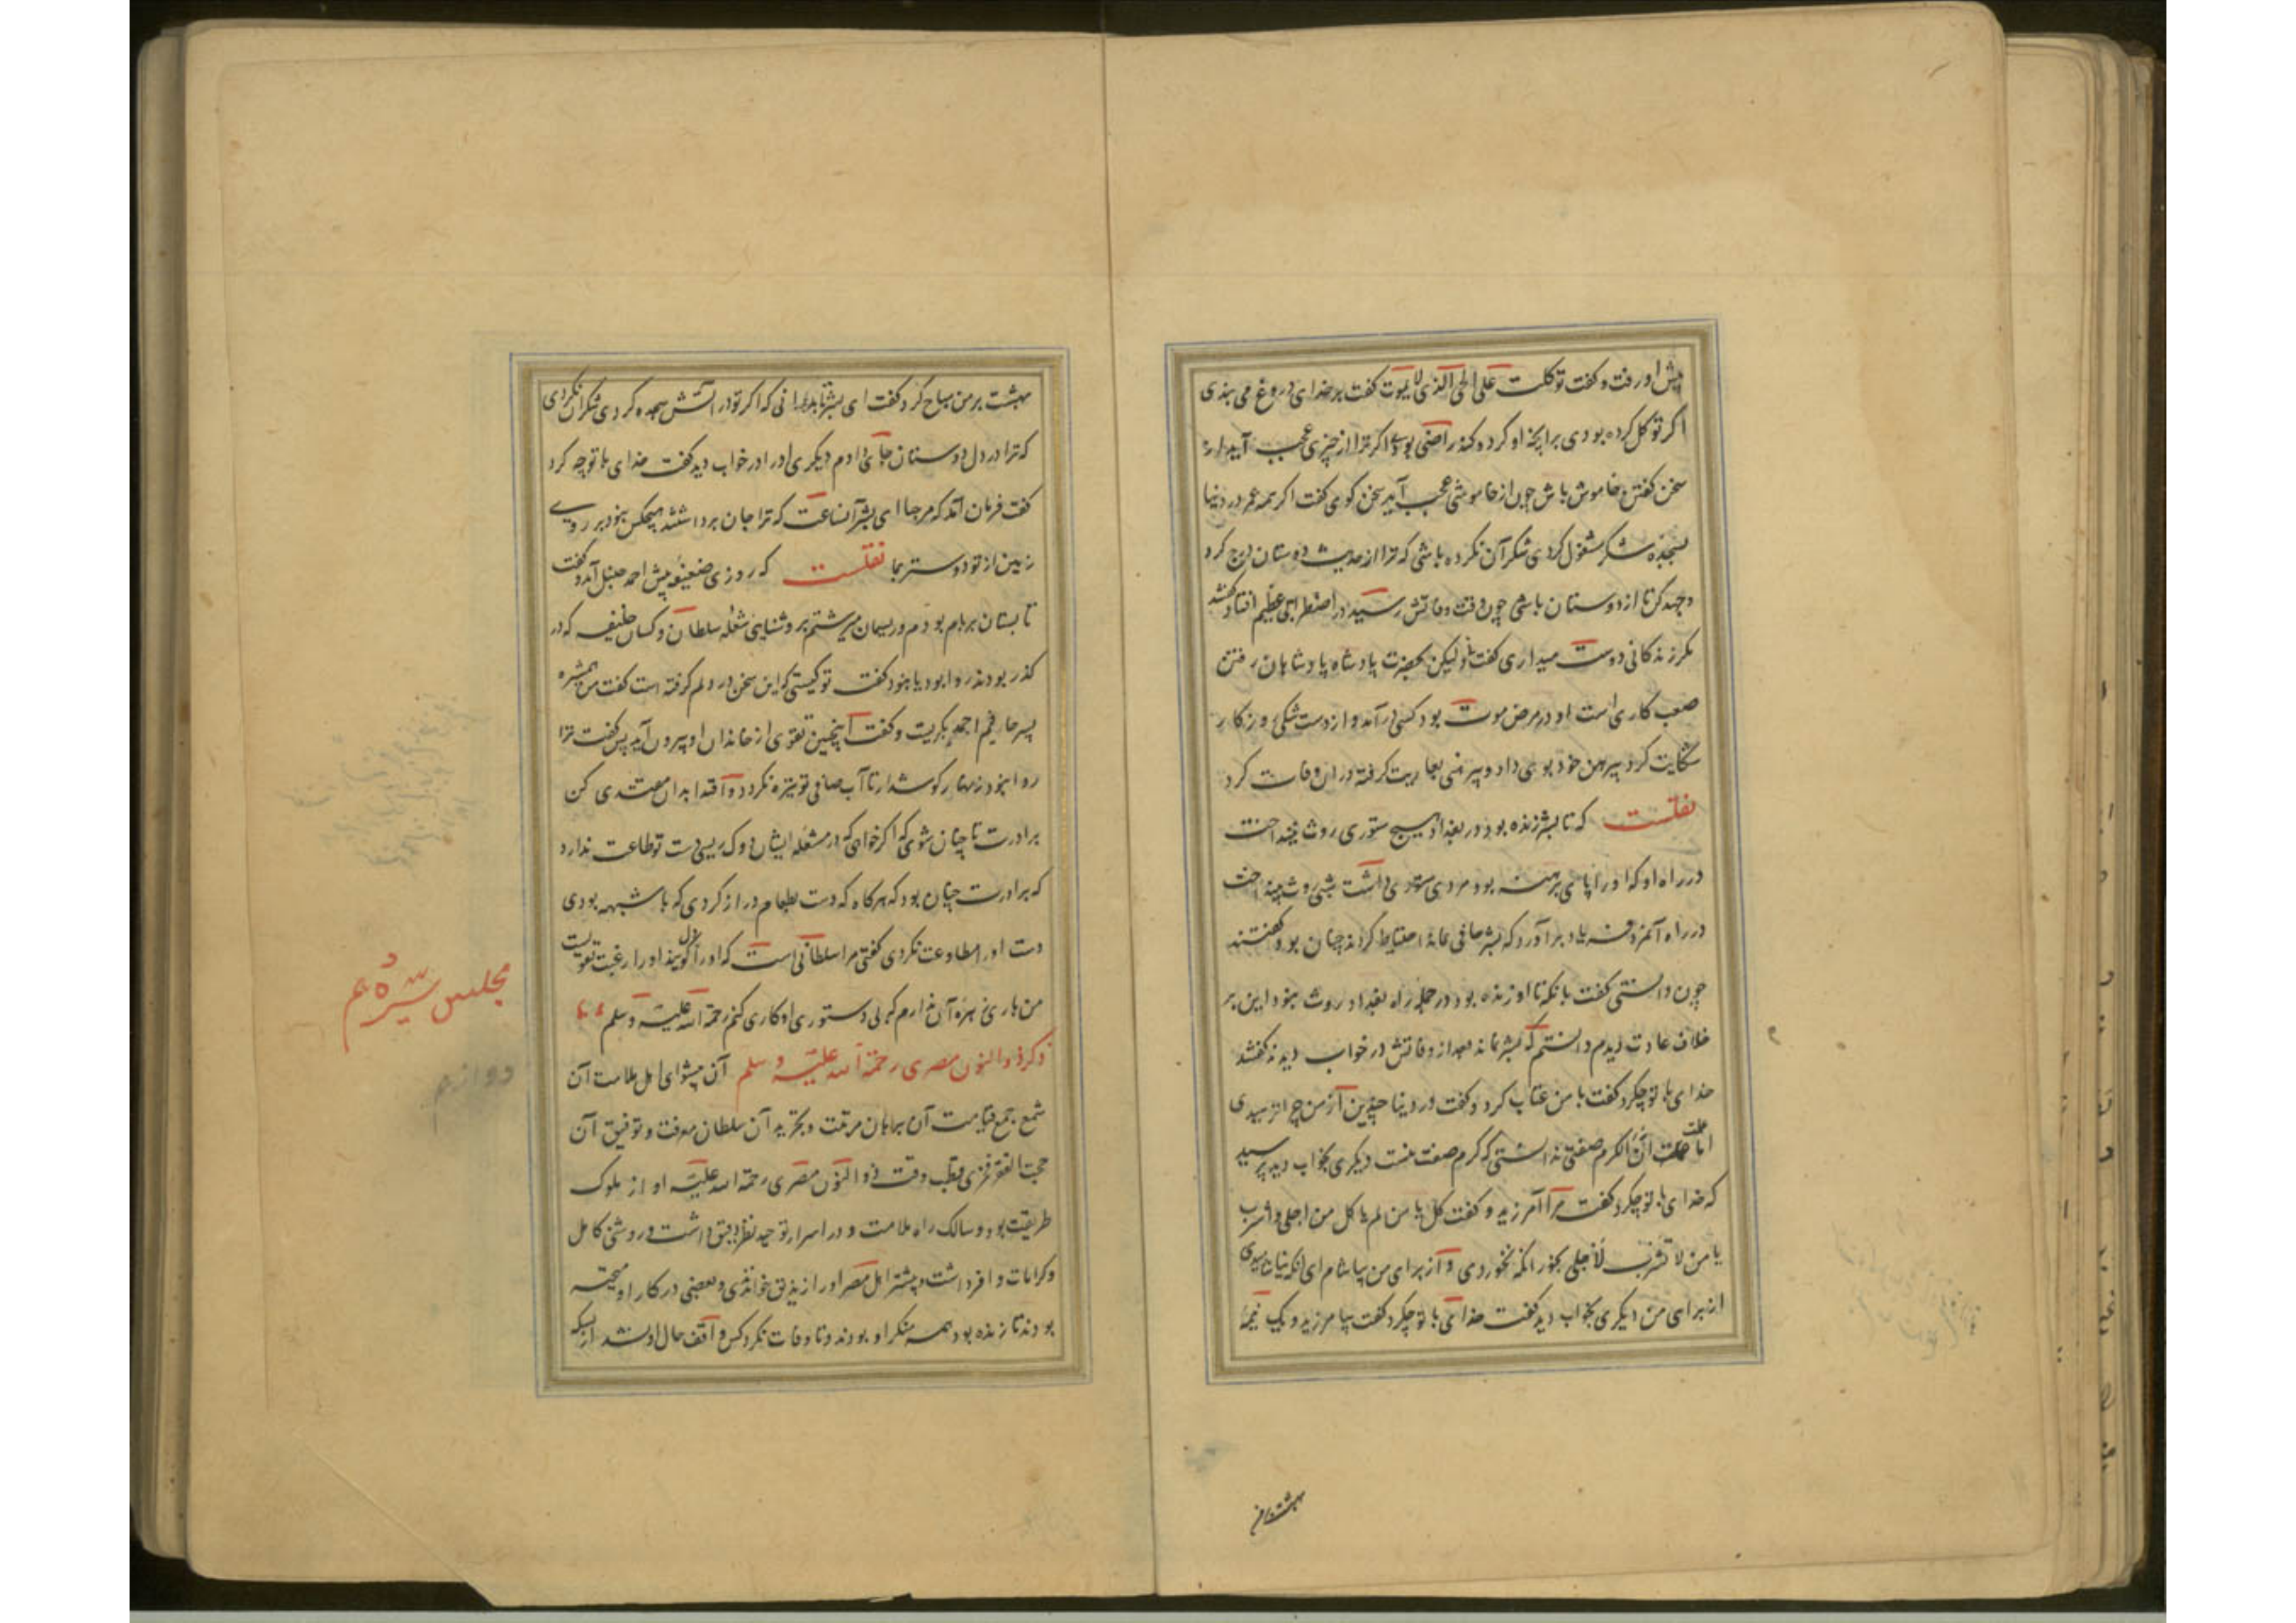 پیش او رفت و گفت توکلت علی الحی الذی لا یموت گفت بر خدای دروغ می بندی
اگر توکل کرده بودی بدانچه او کرد و کند راضی بودی اگر ترا از چیزی عجب آید از
سخن گفتن خاموش باش چون از خاموشی عجب آید سخن گوی گفت اگر همه عمر در دنیا
بسجده شکر مشغول گردی شکر آن نکرده باشی که ترا از حدیث دوستان درج کرد
و جهد کن تا از دوستان باشی چون وقت وفاتش رسید در اضطرابی عظیم افتاد گفتند
مگر زندگانی دوست میداری گفت نه ولیکن بحضرت پادشاه پادشاهان رفتن
صعب کاری است او در مرض موت بود کسی در آمد و از دست تنگی روزگار
شکایت کرد پیرهن خود بوی داد و پیرهنی بعاریت گرفته در آن وفات کرد
نقلست که تا بشر زنده بود در بغداد هیچ ستوری روث نینداخت
در راه او که او را پای برهنه بود مردی ستوری داشت شبی روث بینداخت
در راه آنمرد فریاد برآورد که بشر حافی نماند احتیاط کردند چنان بود گفتند
چون دانستی گفت بانکه تا او زنده بود در جمله راه بغداد روث نبود این بر
خلاف عادت دیدم دانستم که بشر نماند بعد از وفاتش در خواب دیدند گفتند
خدای با تو چکرد گفت با من عتاب کرد و گفت در دنیا چندین از من چرا ترسیدی
اما علمت ان الکرم صفتی ندانستی که کرم صفت منست دیگری بخواب دید پرسید
که خدای با تو چکرد گفت مرا آمرزید و گفت کل یا من لم یاکل من اجلی و اشرب
یا من لا تشرب لاجلی بخور انکه نخوردی و از برای من بیاشام ای انکه نیاشامیدی
از برای من دیگری بخواب دید گفت خدای با تو چکرد گفت بیامرزید و یک نیمهٔ
بهشت بر من
بهشت بر من مباح کرد و گفت ای بشر تا بدانی که اگر تو در آتش سجده کردی شکر آن نکردی
که ترا در دل دوستان جای دادم دیگری او را در خواب دید گفت خدای با تو چه کرد
گفت فرمان آمد که مرحبا ای بشر آنساعت که ترا جان برداشتند هیچکس نبود بر روی
زمین از تو دوستر بما نقلست که روزی ضعیفه پیش احمد حنبل آمد و گفت
تابستان بر بام بودم و ریسمان میرشتم بروشنایی شعله سلطان و کسان خلیفه که در
گذر بودند روا بود یا نبود گفت تو کیستی که این سخن در دلم گرفته است گفت من همشیره
بشر حافیم احمد بگریست و گفت اینچنین تقوی از خاندان او بیرون آید پس گفت ترا
روا نبود زنهار گوش دار تا آب صافی تو تیره نگردد و اقتدا بدان مقتدی کن
برادرت تا چنان شوی که اگر خواهی که در مشعله ایشان دوک ریسی دست تو طاعت ندارد
که برادرت چنان بود که هرگاه که دست بطعام دراز کردی که با شبهه بودی
دست او را مطاوعت نکردی گفتی مرا سلطانی است که او را دل گویند او را رغبت تقویست
من یارای آن ندارم که بی دستوری او کاری کنم رحمة الله علیه وسلم
ذکر ذوالنون مصری رحمة الله علیه وسلم آن پیشوای اهل ملامت آن
شمع جمع قیامت آن برهان مرتبت و تجرید آن سلطان معرفت و توفیق آن
حجت الفقر فخری قطب وقت ذوالنون مصری رحمة الله علیه او از ملوک
طریقت بود و سالک راه ملامت و در اسرار توحید نظر دقیق داشت و روشی کامل
و کرامات وافر داشت و بیشتر اهل مصر او را زندیق خواندی و بعضی در کار او متحیر
بودند تا زنده بود همه منکر او بودند و تا وفات نکرد کس واقف حال او نشد از بسکه
مجلس
دوازدهم